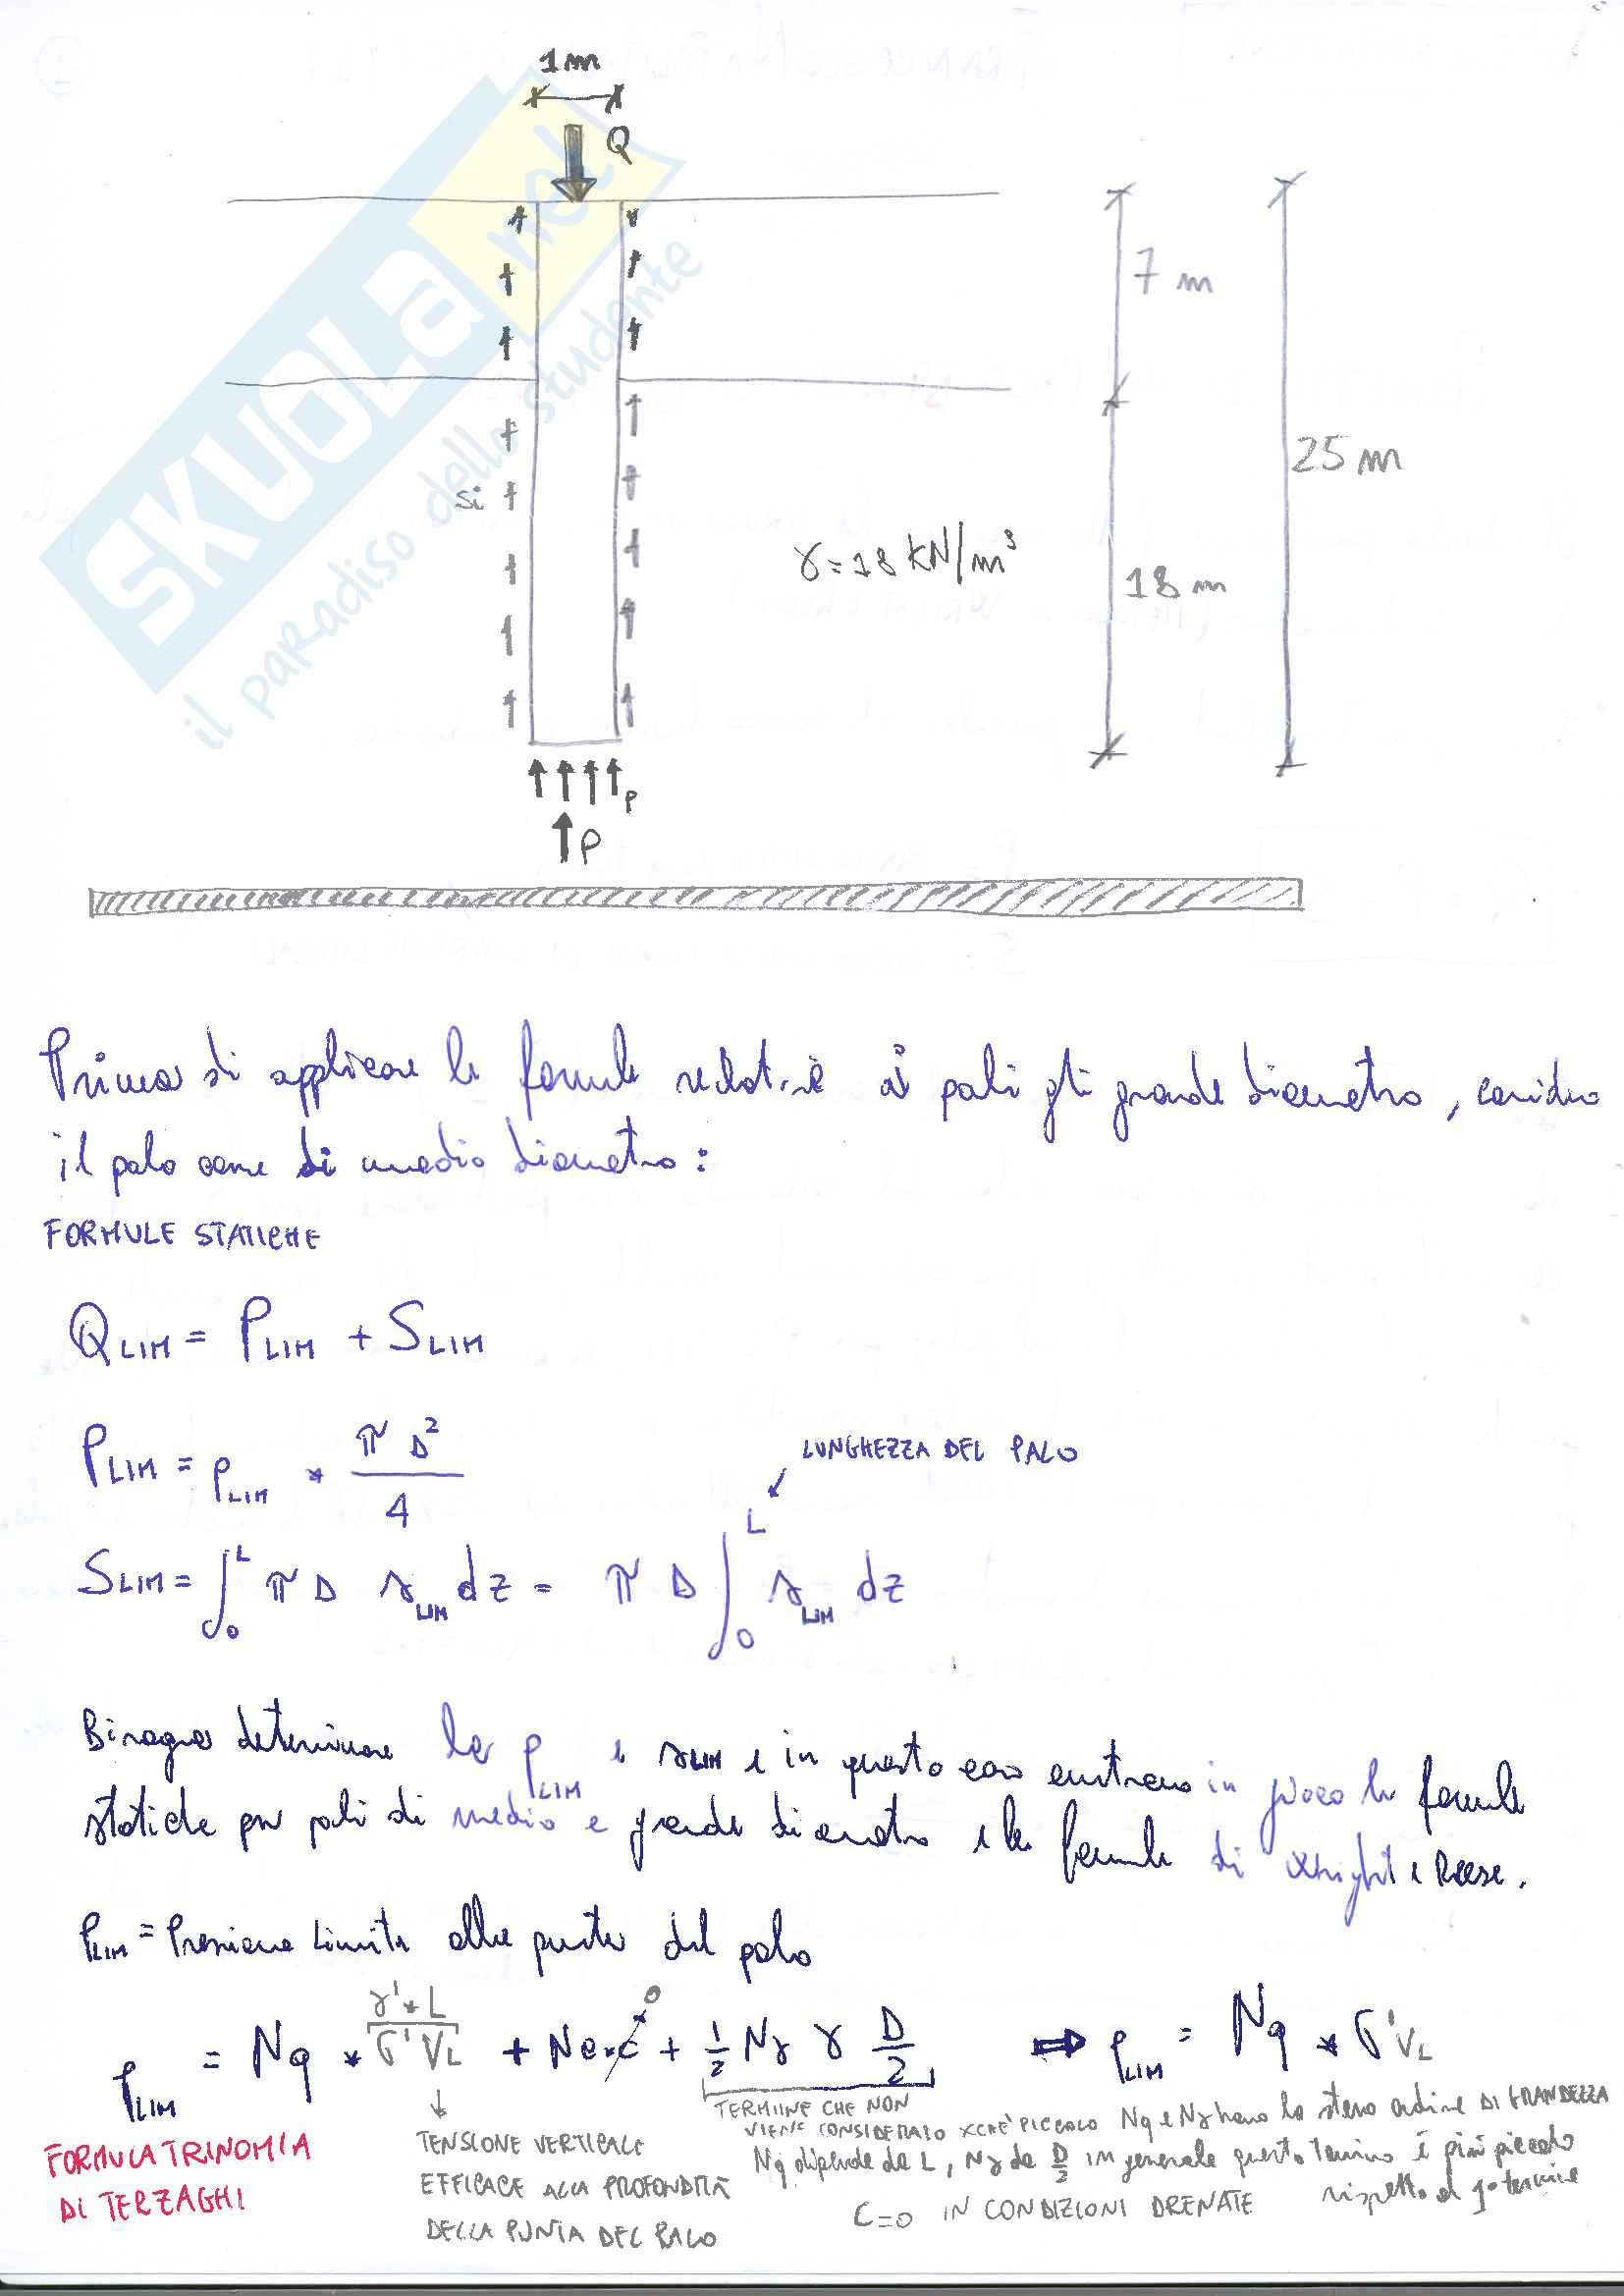 1m
Q
7 m
SKUOLA.net
il paradiso dello studente
25 m
si
γ=18 kN/m³
18 m
p
P
Prima di applicare le formule relative ai pali gli grande diametro, considero
il palo come di medio diametro:
FORMULE STATICHE
Q LIM = P LIM + S LIM
P LIM = p LIM * π D² / 4
LUNGHEZZA DEL PALO
S LIM = ∫₀ᴸ π D s LIM dz = π D ∫₀ᴸ s LIM dz
Bisogna determinare la p LIM e s LIM e in questo caso entrano in gioco le formule
statiche per pali di medio e grande diametro e le formule di Wright e Reese.
p LIM = Pressione Limite alla punta del palo
γ' * L
0
p LIM = Nq * σ'VL + Nc * c + 1/2 Nγ γ D/2 ⇒ p LIM = Nq * σ'VL
FORMULA TRINOMIA
DI TERZAGHI
TENSIONE VERTICALE
EFFICACE ALLA PROFONDITÀ
DELLA PUNTA DEL PALO
TERMINE CHE NON
VIENE CONSIDERATO XCHÈ PICCOLO Nq e Nγ hanno lo stesso ordine DI GRANDEZZA
Nq dipende da L, Nγ da D/2 in generale questo termine è più piccolo
rispetto al 1° termine
C=0 IN CONDIZIONI DRENATE